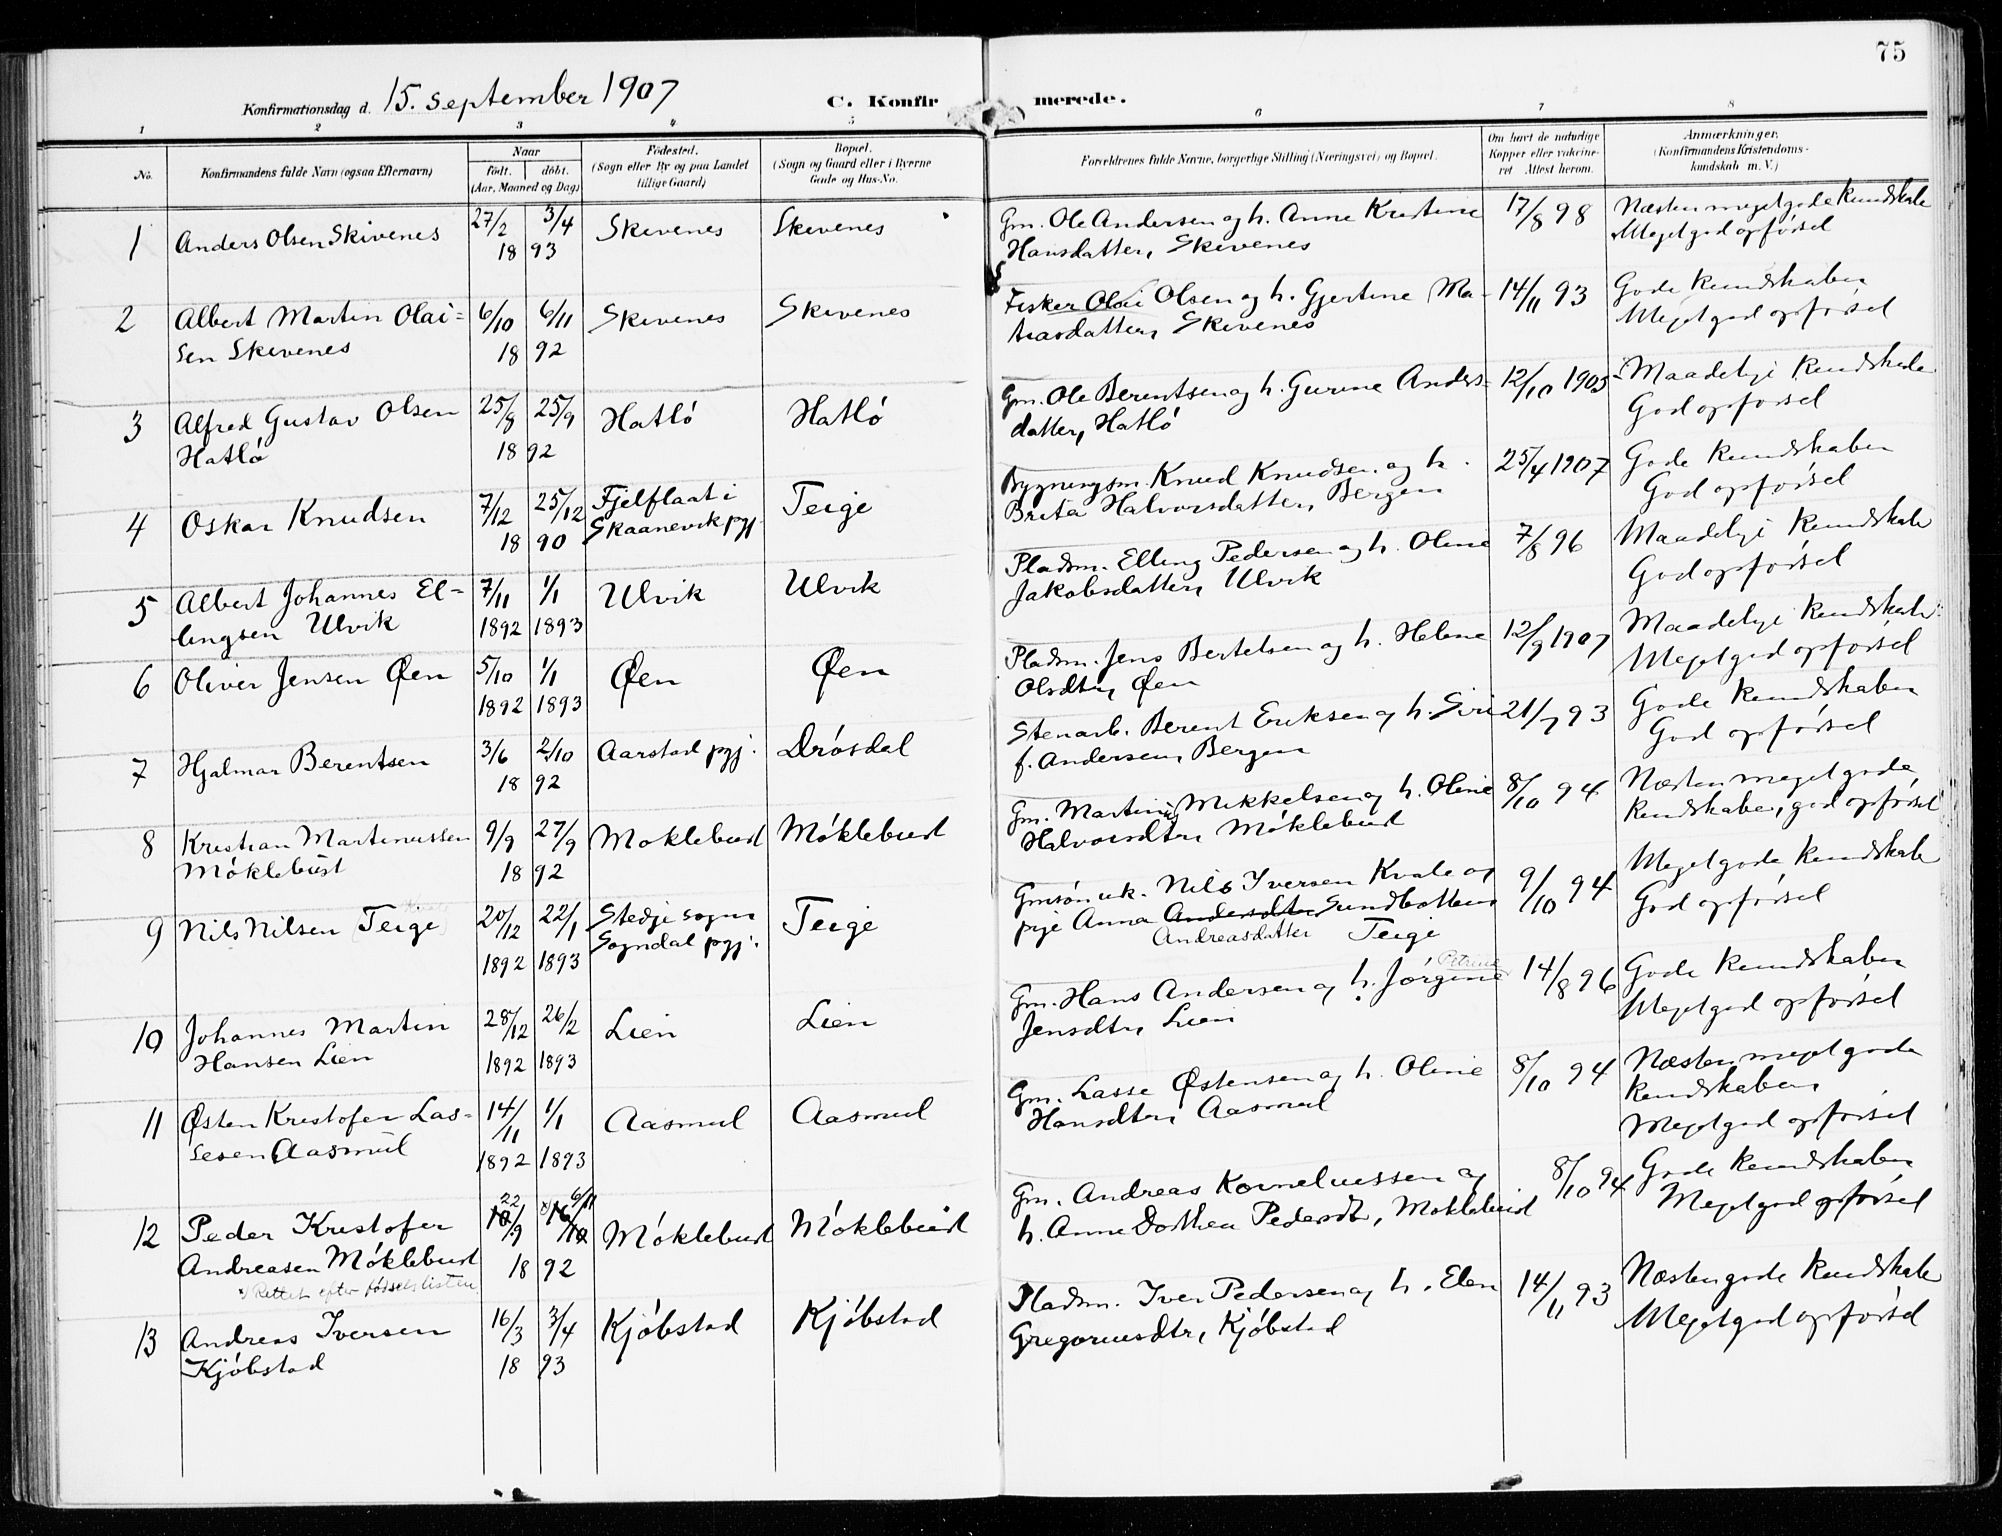 75
Konfirmationsdag d. 15. september 1907 C. Konfirmerede.
1 2 3 4 5 6 7 8
No.
Konfirmandens fulde Navn (ogsaa Efternavn)
Naar
født. døbt.
(Aar, Maaned og Dag)
Fødested.
(Sogn eller By og paa Landet
tillige Gaard)
Bopæl.
(Sogn og Gaard eller i Byerne
Gade og Hus-No.
Forældrenes fulde Navne, borgerlige Stilling (Næringsvei) og Bopæl.
Om havt de naturlige
Kopper eller vakcine-
ret Attest herom.
Anmærkninger.
(Konfirmandens Kristendoms-
kundskab m. V.)
1 Anders Olsen Skivenes 27/2 3/4 Skivenes Skivenes
18 93
Gm. Ole Andersen og h. Anne Kristine 17/8 98 Næsten meget gode kundskabe
Hansdatter, Skivenes Meget god opførsel
2 Albert Martin Olai- 6/10 6/11 Skivenes Skivenes
sen Skivenes 18 92
Fisker Olai Olsen og h. Gjertine Ma- 14/11 93 Gode kundskaber
tiasdatter, Skivenes Meget god opførsel
3 Alfred Gustav Olsen 25/8 25/9 Hatlö Hatlö
Hatlö 18 92
Gm. Ole Berentsen og h. Gurine Anders- 12/10 1905 Maadelige kundskabe
datter, Hatlö God opførsel
4 Oskar Knudsen 7/12 25/12 Fjelflaat i Teige
18 90 Skaanevik pgj.
Bygningsm. Knud Knudsen og h. 25/4 1907 Gode kundskaber
Brita Halvorsdatter, Bergen God opførsel
5 Albert Johannes El- 7/11 1/1 Ulvik Ulvik
lingsen Ulvik 1892 1893
Pladsm. Elling Pedersen og h. Oline 7/8 96 Maadelige kundskabe
Jakobsdatter, Ulvik God opførsel
6 Oliver Jensen Øen 5/10 1/1 Øen Øen
1892 1893
Pladsm. Jens Bertelsen og h. Helene 12/9 1907 Maadelige kundskabe
Olsdtr, Øen Meget god opførsel
7 Hjalmar Berentsen 3/6 2/10 Aarstad pgj. Drösdal
18 92
Stenarb. Berent Eriksen og h. Siri 21/7 93 Gode kundskaber
f. Andersen, Bergen God opførsel
8 Kristian Martinussen 9/9 27/9 Moklebust Möklebust
Möklebust 18 92
Gm. Martinus Mikkelsen og h. Oline 8/10 94 Næsten meget gode
Halvorsdtr, Möklebust kundskaber, god opførsel
9 Nils Nilsen Teige 20/12 22/1 Stedje sogn Teige
1892 1893 Sogndal pgj.
Gmsön uk. Nils Iversen Kvale og 9/10 94 Meget gode kundskabe
pige Anna Andersdtr Sundbotten God opførsel
Andreasdatter Teige
10 Johannes Martin 28/12 26/2 Lien Lien
Hansen Lien 1892 1893
Petrine
Gm. Hans Andersen og h. Jörgine 14/8 96 Gode kundskaber
Jensdtr, Lien Meget god opførsel
11 Østen Kristofer Las- 14/11 1/1 Aasmul Aasmul
sesen Aasmul 1892 1893
Gm. Lasse Østensen og h. Oline 8/10 94 Næsten meget gode
Hansdtr, Aasmul kundskaber
Meget god opførsel
22 6/11
12 Peder Kristofer 10/9 16/10 Möklebust Möklebust
Andreasen Möklebust 18 92
Rettet efter födselslisten
Gm. Andreas Korneliussen og 8/10 94 Gode kundskaber
h. Anne Dorthea Pedersdt, Moklebust Meget god opførsel
13 Andreas Iversen 16/3 3/4 Kjöbstad Kjöbstad
Kjöbstad 18 93
Pladsm. Iver Pedersen og h. Elen 14/11 93 Næsten gode kundskabe
Gregoriusdtr, Kjöbstad Meget god opførsel